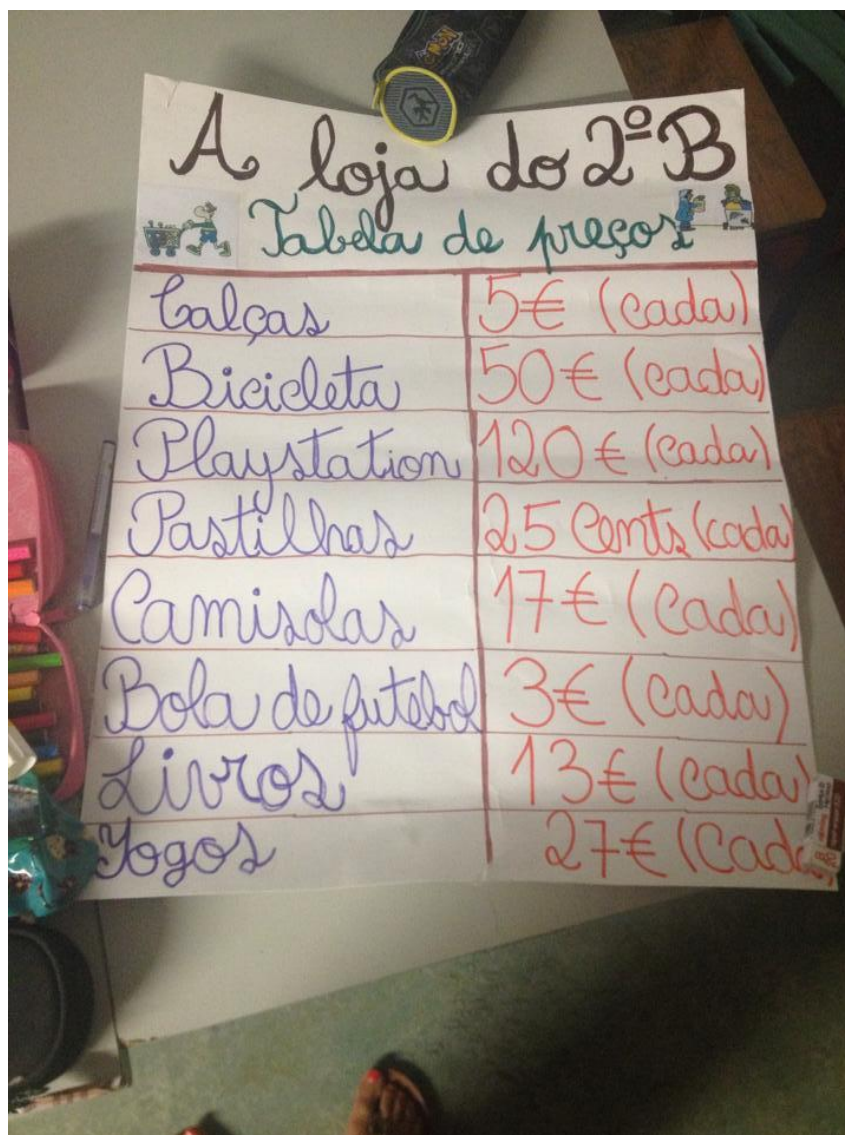 A loja do 2º B
Tabela de preços
Calças 5€ (cada)
Bicicleta 50€ (cada)
Playstation 120€ (cada)
Pastilhas 25 Cents (cada)
Camisolas 17€ (cada)
Bola de futebol 3€ (cada)
Livros 13€ (cada)
Jogos 27€ (Cada